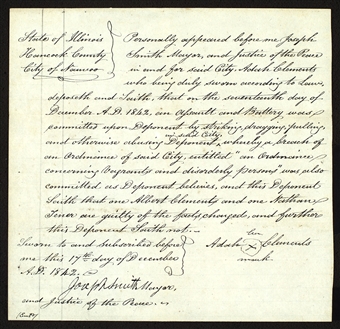 State of Illinois
Hancock County
City of Nauvoo
Personally appeared before me Joseph
Smith Mayor, and Justice of the Peace
in and for said City, Adah Clements
who being duly sworn according to Law,
deposeth and Saith, that on the seventeenth day of
December A.D. 1842, an Assault and Battery was
committed upon Deponent, by striking, dragging, pulling,
in said City,
and otherwise abusing Deponent, whereby a breach of
an Ordinance of said City, entitled "an Ordinance
concerning Vagrants and disorderly persons was also
committed as Deponent believes, and this Deponent
Saith that one Albert Clements and one Nathan
are guilty of the facts charged, and further
this Deponent Saith not.
Sworn to and subscribed before
me this 17th day of December
A.D. 1842.
her
Adah X Clements
mark
Joseph Smith Mayor,
and Justice of the Peace.